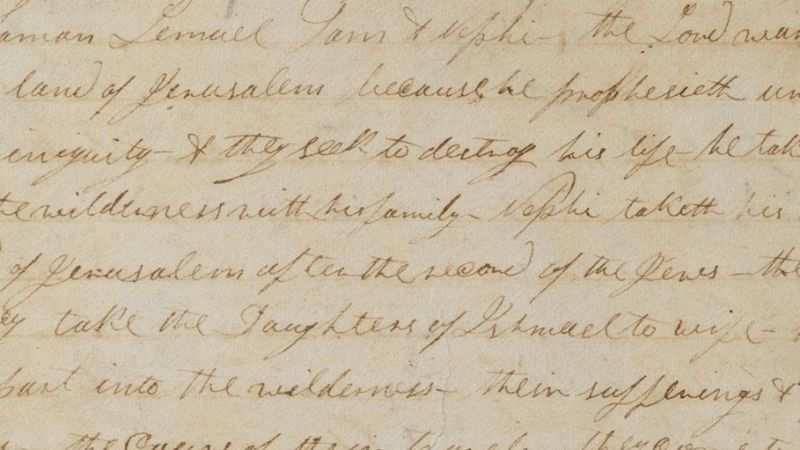 Laman Lemuel Sam & Nephi— the Lord war
land of Jerusalem because he prophesieth un
iniquity— & they seek to destroy his life— he tak
the wilderness with his family— Nephi taketh his
of Jerusalem after the record of the Jews— the
ey take the Daughters of Ishmael to wife—
part into the wilderness— their sufferings &
the Course of their travels— they come to